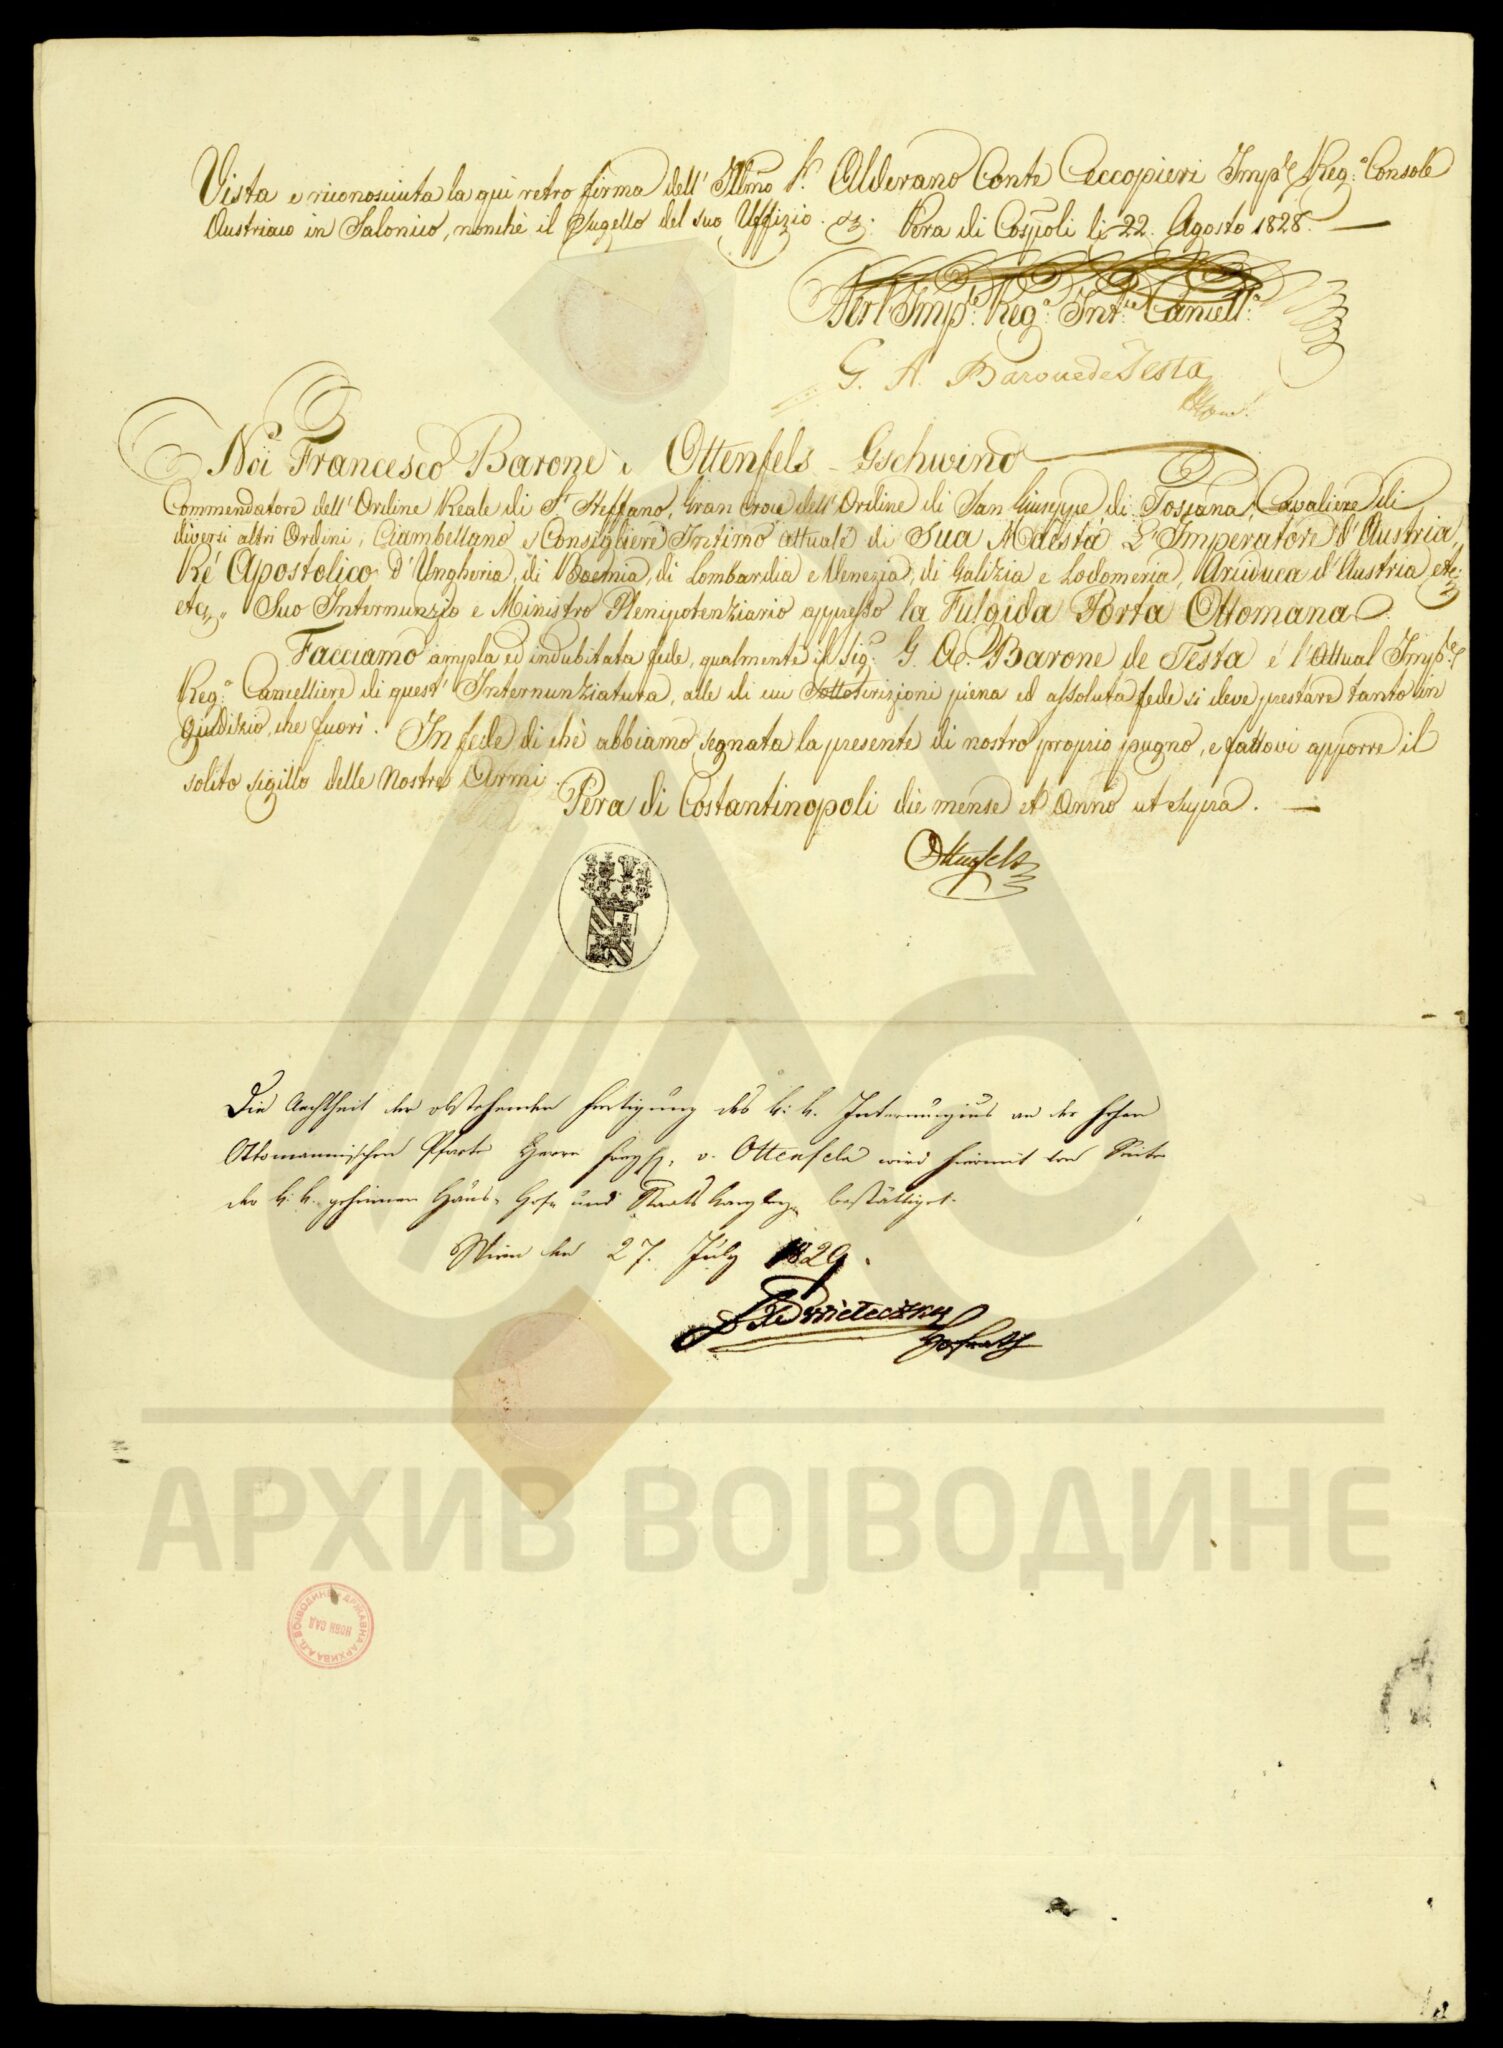 Vista e riconosciuta la quì retro firma dell' Illmo Sr. Alderano Conte Ceccopieri Imp.le Reg.o Console
Austriaco in Salonico, nonchè il Sugello del suo Uffizio. Pera di Cospoli li 22. Agosto 1828.
Per l'Imp.e Reg.a Int.ra Cancell.a
G. A. Barone de Testa
Noi Francesco Barone d' Ottenfels - Gschwind
Commendatore dell' Ordine Reale di St. Steffano, Gran Croce dell' Ordine di San Giuseppe di Toscana, Cavaliere di
diversi altri Ordini, Ciambellano e Consigliere Intimo attuale di Sua Maestà L'Imperatore d'Austria,
Ré Apostolico d'Ungheria, di Boemia, di Lombardia e Venezia, di Galizia e Lodomeria, Arciduca d'Austria etc:
etc,, Suo Internunzio e Ministro Plenipotenziario appresso la Fulgida Porta Ottomana.
Facciamo ampla ed indubitata fede, qualmente il Sig.r G. A. Barone de Testa é l'Attual Imp.le
Reg.o Cancelliere di quest' Internunziatura, alle di cui Sottoscrizioni piena ed assoluta fede si deve prestare tanto in
Giudizio, che fuori. In fede di chè abbiamo segnata la presente di nostro proprio pugno, e fattovi apporre il
solito sigillo delle Nostre Armi.
Pera di Costantinopoli die mense et Anno ut supra.
Ottenfels
Die Aechtheit der obstehenden Fertigung des k: k. Internunzius an der hohen
Ottomannischen Pforte Herrn Freyh. v. Ottenfels wird hiermit von Seite
der k: k. geheimen Haus- Hof- und Staats Kanzley bestättiget.
Wien den 27. July 1829.
Hofrath
АРХИВ ВОЈВОДИНЕ
ДРЖАВНА АРХИВА А.П. ВОЈВОДИНЕ
НОВИ САД